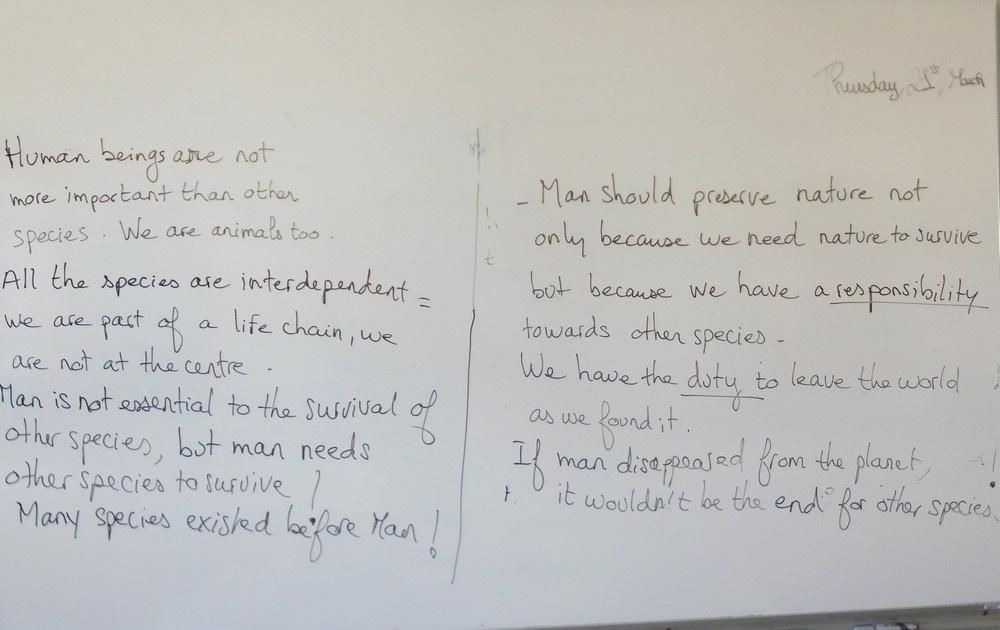 Thursday, 21st, March
Human beings are not
more important than other
species. We are animals too.
All the species are interdependent =
we are part of a life chain, we
are not at the centre.
Man is not essential to the survival of
other species, but man needs
other species to survive !
Many species existed before Man !
- Man should preserve nature not
only because we need nature to survive
but because we have a responsibility
towards other species.
We have the duty to leave the world
as we found it.
If man disappeared from the planet,
it wouldn't be the end for other species.